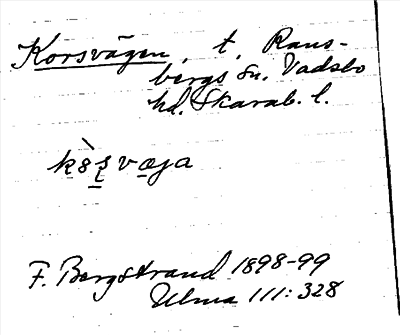 Korsvägen, t, Rans-
bergs sn. Vadsbo
hd. Skarab. l.
F. Bergstrand 1898-99
Ulma 111:328